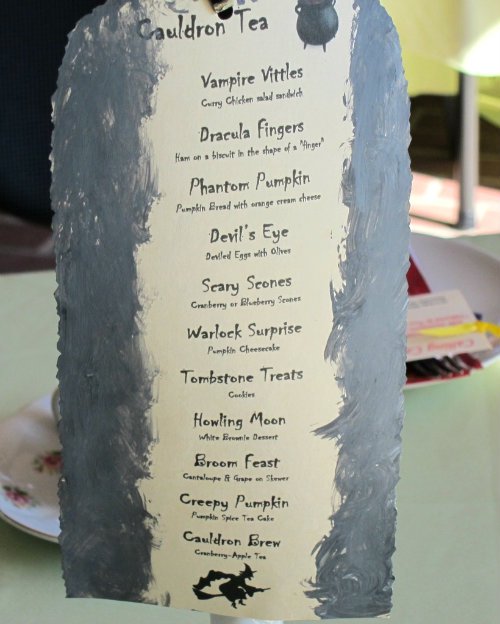 Cauldron Tea
Vampire Vittles
Curry Chicken salad sandwich
Dracula Fingers
Ham on a biscuit in the shape of a "finger"
Phantom Pumpkin
Pumpkin Bread with orange cream cheese
Devil's Eye
Deviled Eggs with Olives
Scary Scones
Cranberry or Blueberry Scones
Warlock Surprise
Pumpkin Cheesecake
Tombstone Treats
Cookies
Howling Moon
White Brownie Dessert
Broom Feast
Cantaloupe & Grape on Skewer
Creepy Pumpkin
Pumpkin Spice Tea Cake
Cauldron Brew
Cranberry-Apple Tea